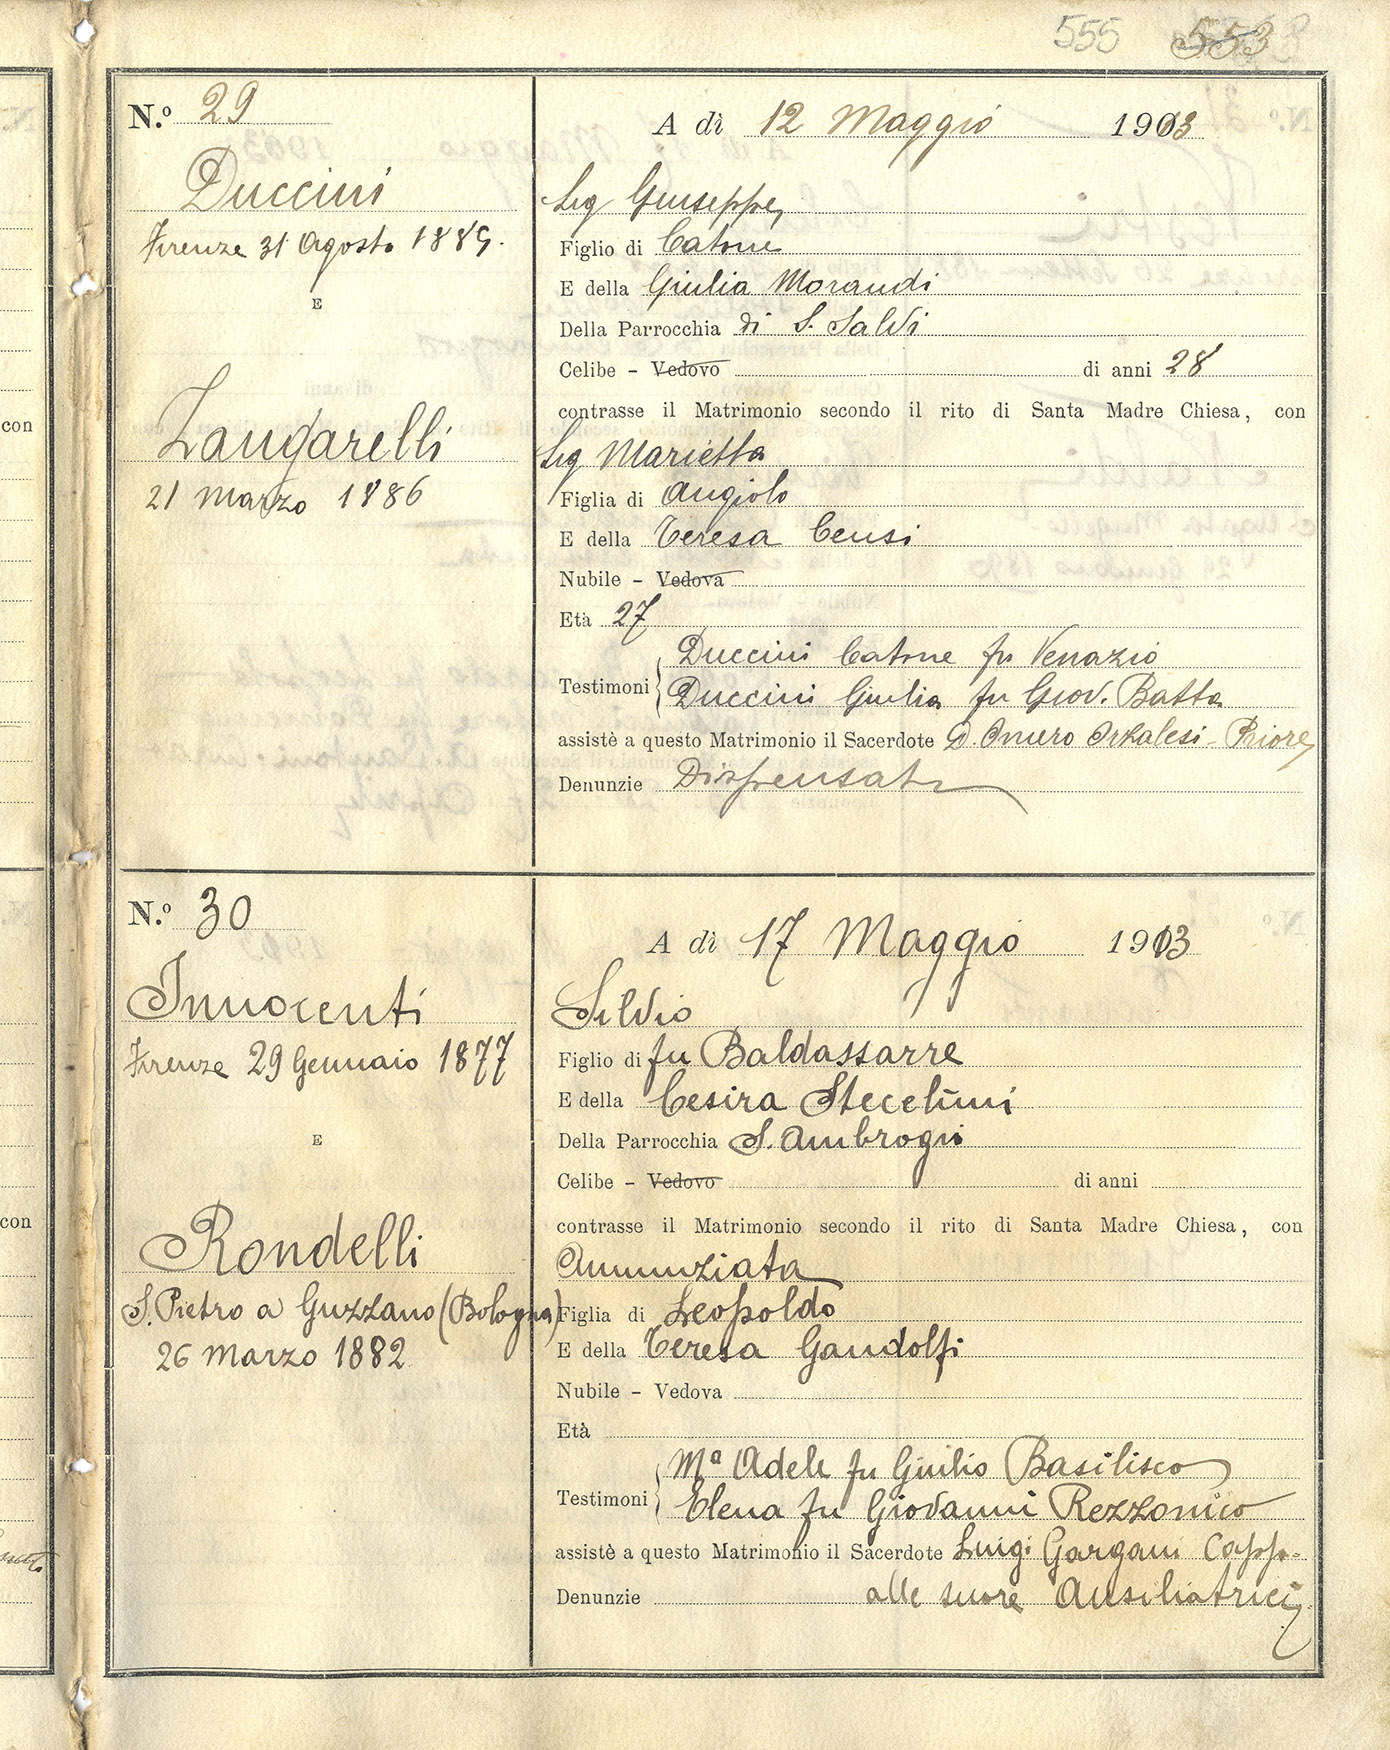 555 553
N.º 29
Duccini
Firenze 31 Agosto 1885.
E
Zangarelli
21 Marzo 1886
A dì 12 Maggio 1913
Sig Giuseppe
Figlio di Catone
E della Giulia Morandi
Della Parrocchia di S. Salvi
Celibe - Vedovo di anni 28
contrasse il Matrimonio secondo il rito di Santa Madre Chiesa, con
Sig Marietta
Figlia di Angiolo
E della Teresa Censi
Nubile - Vedova
Età 27
Duccini Catone fu Venazio
Testimoni
Duccini Giulia fu Giov. Batta
assistè a questo Matrimonio il Sacerdote D. Omero Orzalesi - Priore
Denunzie Dispensate
N.º 30
Innocenti
Firenze 29 Gennaio 1877
E
Rondelli
S. Pietro a Guzzano (Bologna)
26 Marzo 1882
A dì 17 Maggio 1913
Silvio
Figlio di fu Baldassarre
E della Cesira
Della Parrocchia S. Ambrogio
Celibe - Vedovo di anni
contrasse il Matrimonio secondo il rito di Santa Madre Chiesa, con
Annunziata
Figlia di Leopoldo
E della Teresa Gandolfi
Nubile - Vedova
Età
Mª Adele fu Giulio Basilisco
Testimoni
Elena fu Giovanni Rezzonico
assistè a questo Matrimonio il Sacerdote Luigi Gargani Capp.
Denunzie alle suore Ausiliatrici
con
con